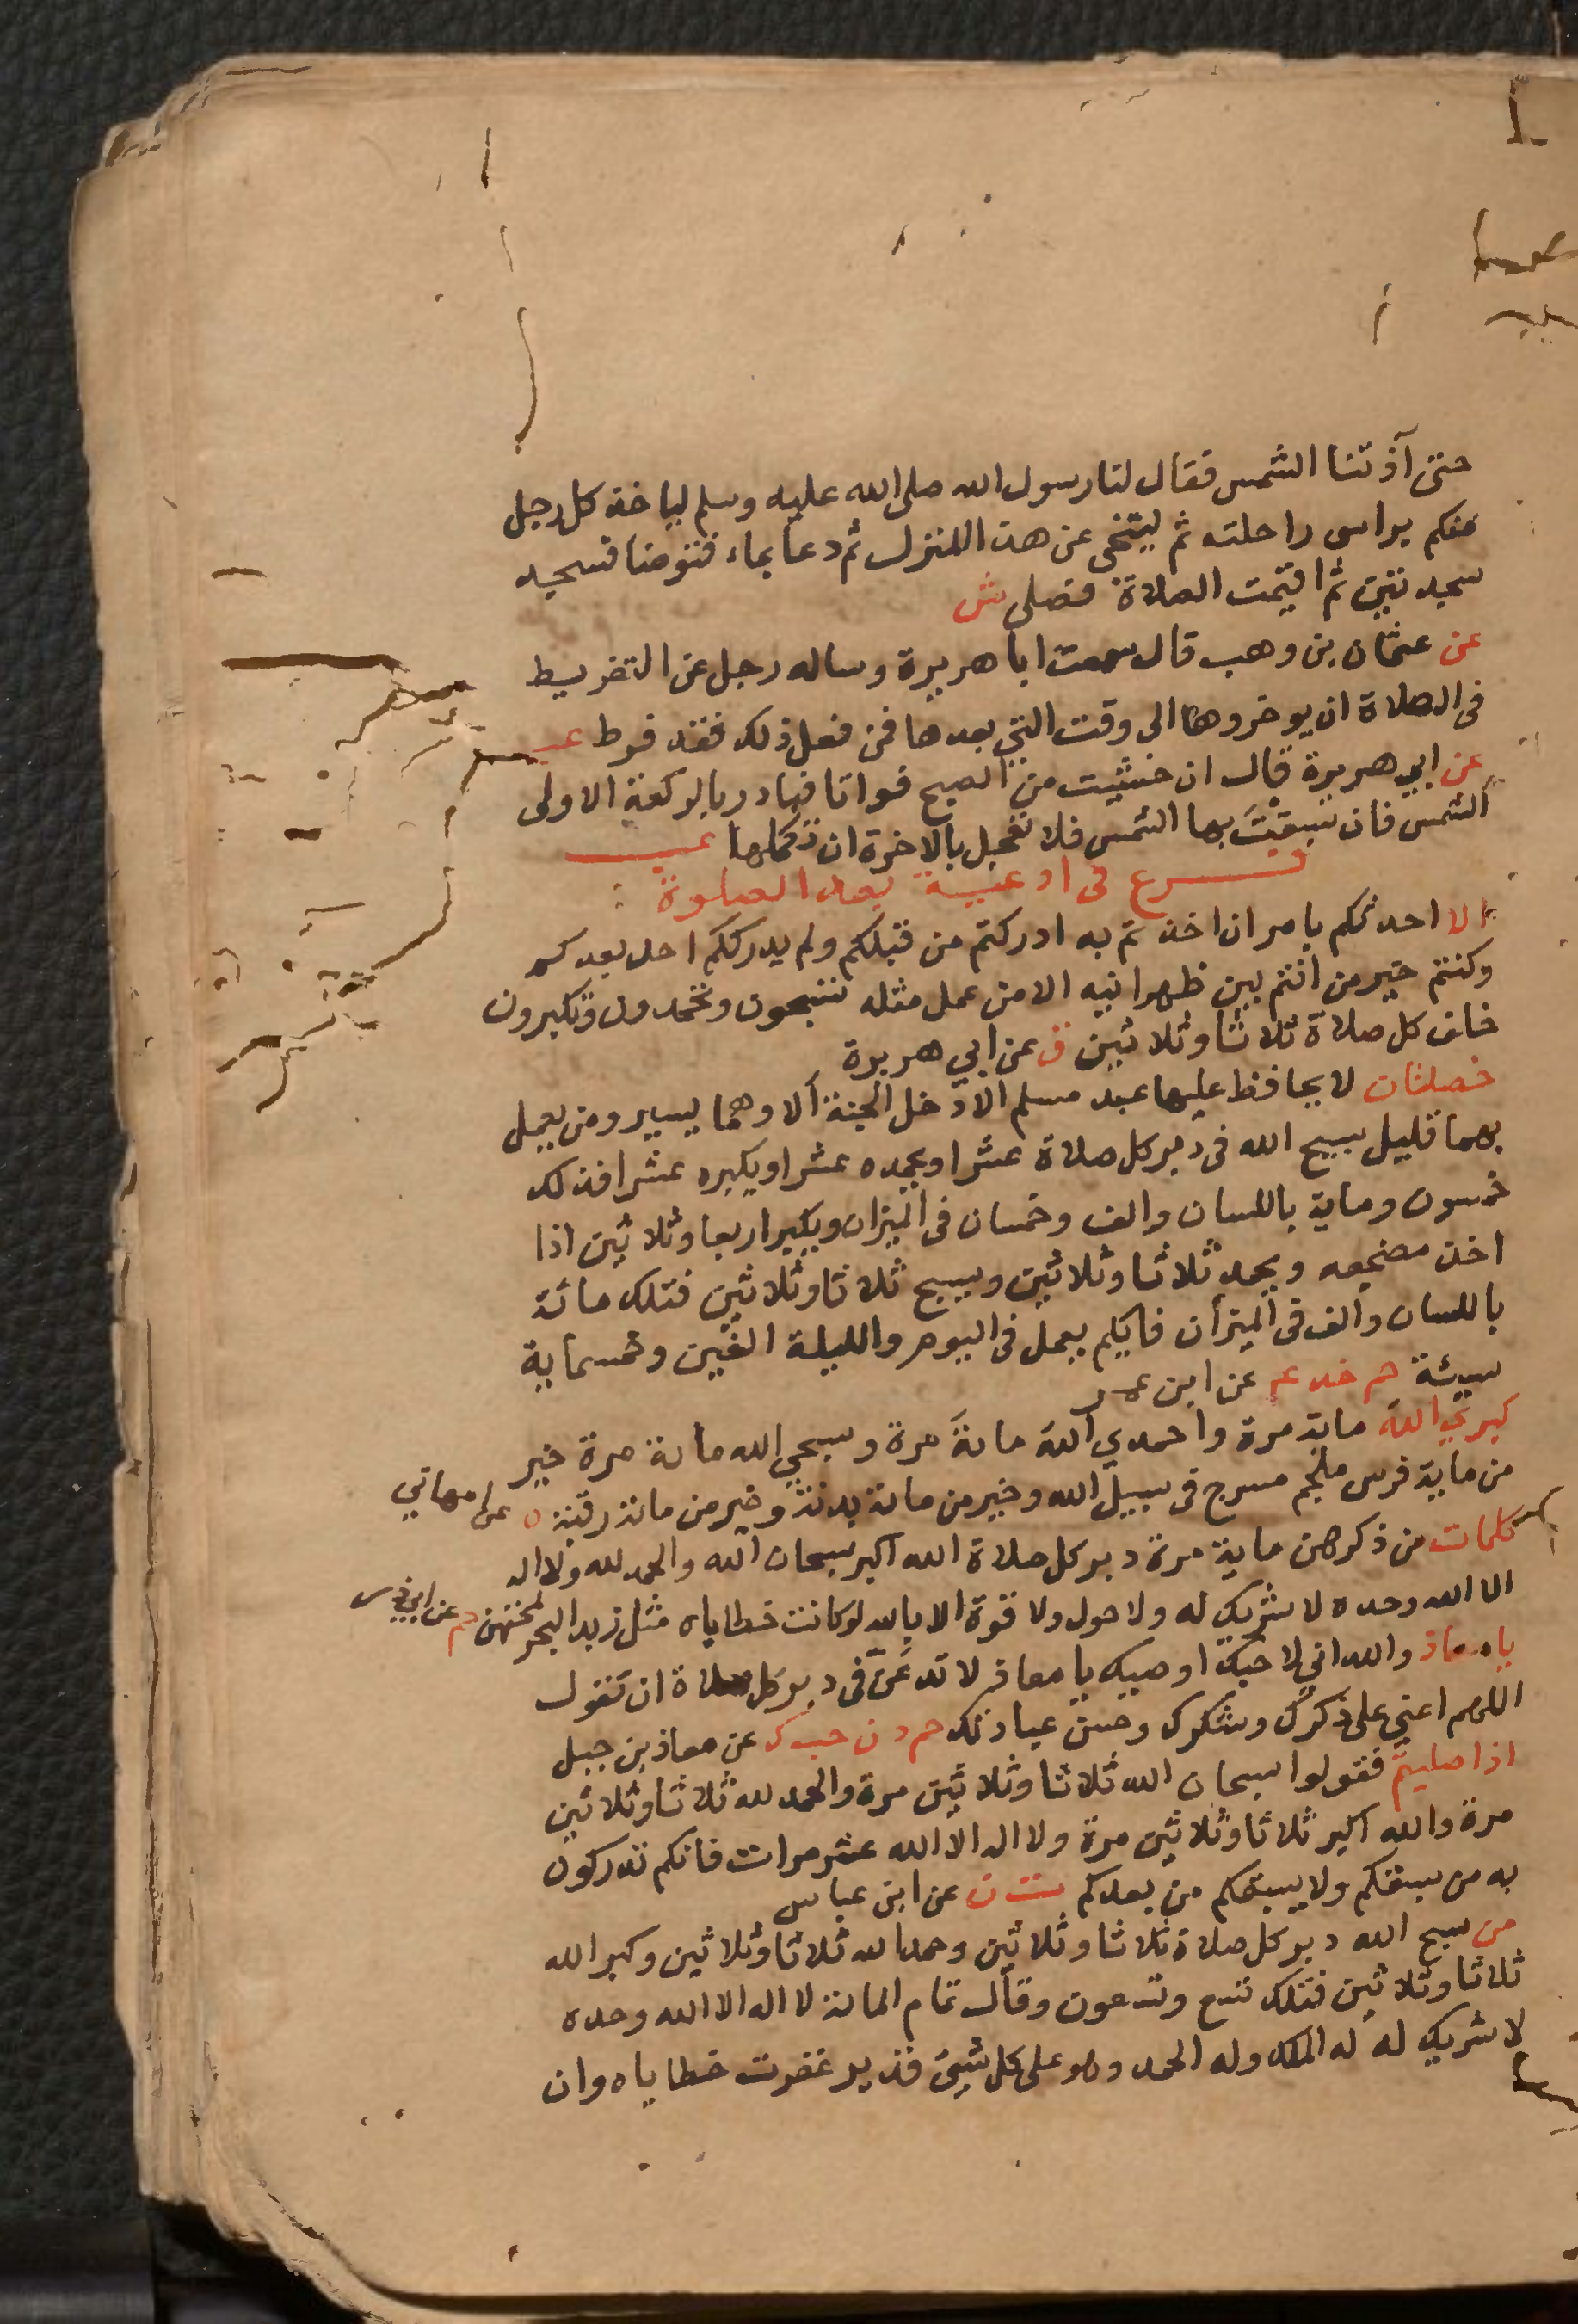 حتى آذتنا الشمس فقال لنا رسول الله صلى الله عليه وسلم لياخذ كل رجل
منكم براس راحلته ثم ليتنحى عن هذا المنزل ثم دعا بماء فتوضا فسجد
سجدتين ثم اقيمت الصلاة فصلى ش
عن عثمان بن وهب قال سمعت ابا هريرة وساله رجل عن التفريط
فى الصلاة ان يوخروها الى وقت التي بعدها فمن فعل ذلك فقد فرط عب
عن ابي هريرة قال ان خشيت من الصبح فواتا فبادر بالركعة الاولى
الشمس فان سبقت بها الشمس فلا تعجل بالاخرة ان تكملها عب
فرع فى ادعية بعد الصلوة
الا احدثكم بامر ان اخذتم به ادركتم من قبلكم ولم يدرككم احد بعدكم
وكنتم خير من انتم بين ظهرانيه الا من عمل مثله تسبحون وتحمدون وتكبرون
خلف كل صلاة ثلاثا وثلاثين ق عن ابي هريرة
خصلتان لا يحافظ عليهما عبد مسلم الا دخل الجنة ألا وهما يسير ومن يعمل
بهما قليل يسبح الله فى دبر كل صلاة عشرا ويحمده عشرا ويكبره عشرا فذلك
خمسون وماية باللسان والف وخمسان فى الميزان ويكبر اربعا وثلاثين اذا
اخذ مضجعه ويحمد ثلاثا وثلاثين ويسبح ثلاثا وثلاثين فتلك مائة
باللسان والف فى الميزان فايكم يعمل فى اليوم والليلة الفين وخمسماية
سيئة حم خد عم عن ابن عمر
كبري الله ماية مرة واحمدي الله مانة مرة وسبحي الله مانة مرة خير
من ماية فرس ملجم مسرج فى سبيل الله وخير من مانة بدنة وخير من مانة رقبة ه عن ام هاني
كلمات من ذكرهن ماية مرة دبر كل صلاة الله اكبر سبحان الله والحمد لله ولا اله
الا الله وحده لا شريك له ولا حول ولا قوة الا بالله لو كانت خطاياه مثل زبد البحر لمحتهن حم عن ابي ذر
يا معاذ والله اني لاحبك اوصيك يا معاذ لا تدعن فى دبر كل صلاة ان تقول
اللهم اعني على ذكرك وشكرك وحسن عبادتك حم د ن حب ك عن معاذ بن جبل
اذا صليتم فقولوا سبحان الله ثلاثا وثلاثين مرة والحمد لله ثلاثا وثلاثين
مرة والله اكبر ثلاثا وثلاثين مرة ولا اله الا الله عشر مرات فانكم تدركون
به من سبقكم ولا يسبقكم من بعدكم ت ن عن ابن عباس
من سبح الله دبر كل صلاة ثلاثا وثلاثين وحمد الله ثلاثا وثلاثين وكبر الله
ثلاثا وثلاثين فتلك تسع وتسعون وقال تمام المانة لا اله الا الله وحده
لا شريك له له الملك وله الحمد وهو على كل شيئ قدير غفرت خطاياه وان